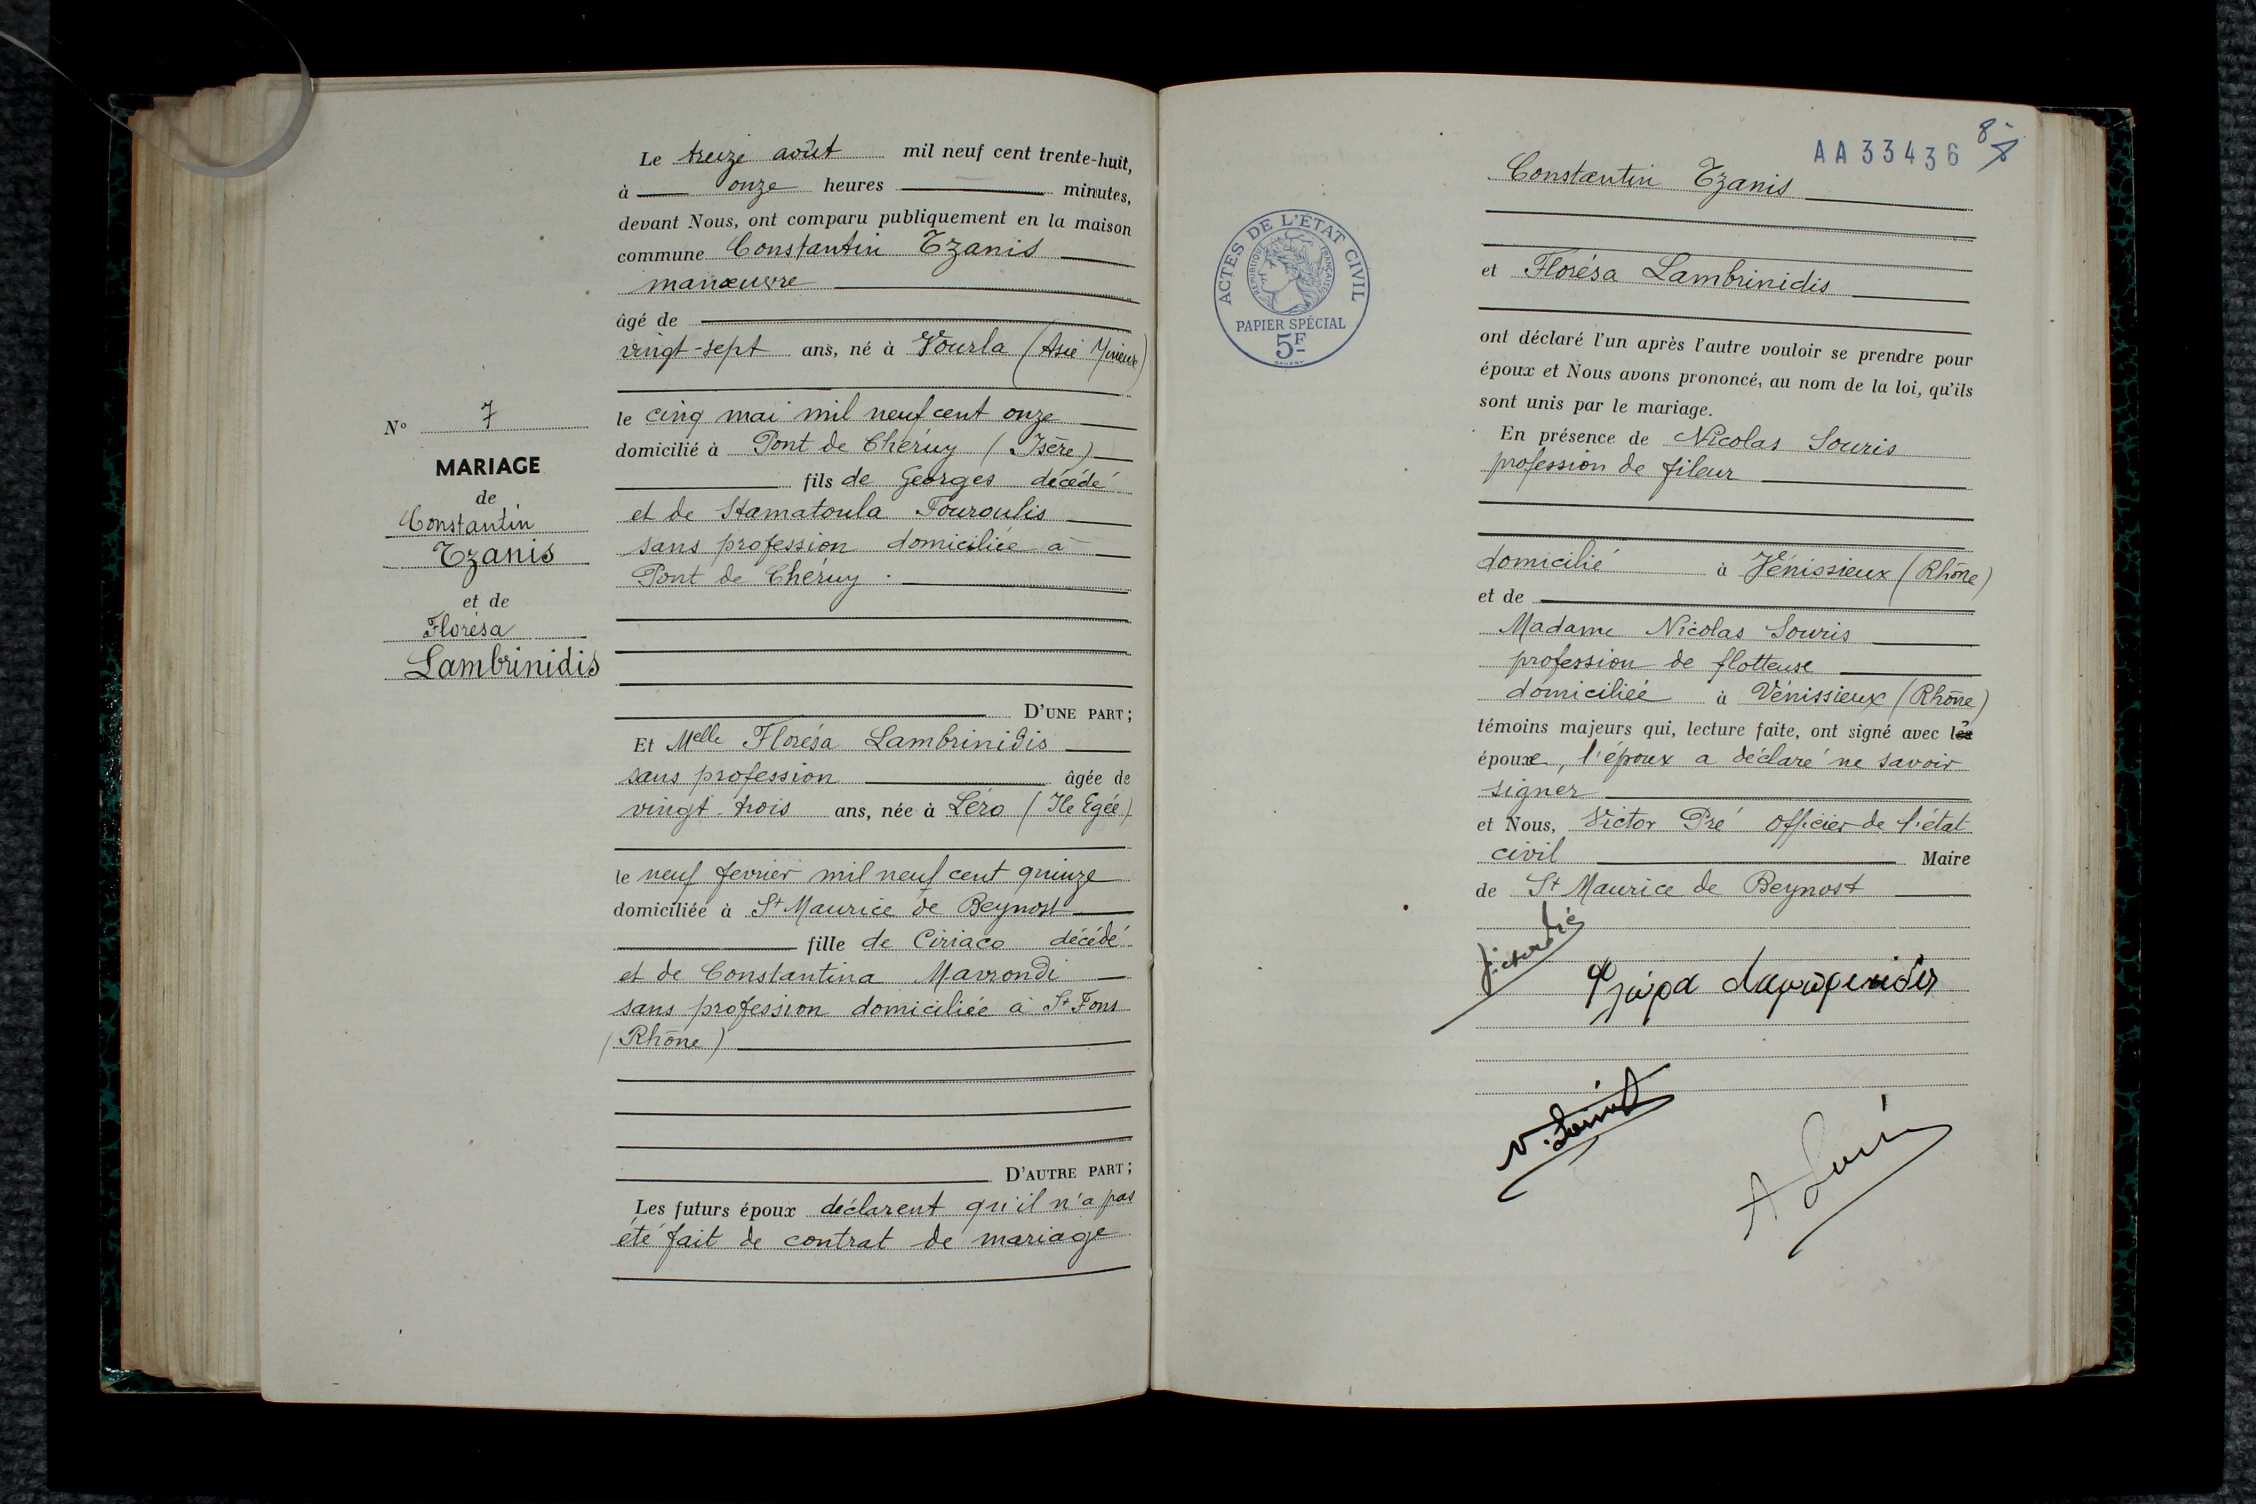 Le treize août mil neuf cent trente-huit,
à onze heures minutes,
devant Nous, ont comparu publiquement en la maison
commune Constantin Tzanis
manœuvre
âgé de
vingt-sept ans, né à Vourla (Asie Mineure)
le cinq mai mil neuf cent onze
domicilié à Pont de Chéruy (Isère)
fils de Georges décédé
et de Stamatoula Fouroulis
sans profession domiciliée à
Pont de Chéruy.
D'UNE PART;
Et Melle Florésa Lambrinidis
sans profession âgée de
vingt-trois ans, née à Léro (Ile Egée)
le neuf fevrier mil neuf cent quinze
domiciliée à St Maurice de Beynost
fille de Ciriaco décédé
et de Constantina Mavrondi
sans profession domiciliée à St Fons
(Rhône)
D'AUTRE PART;
Les futurs époux déclarent qu'il n'a pas
été fait de contrat de mariage
N° 7
MARIAGE
de
Constantin
Tzanis
et de
Florésa
Lambrinidis
AA33436
8
ACTES DE L'ÉTAT CIVIL
RÉPUBLIQUE FRANÇAISE
PAPIER SPÉCIAL
5F
Constantin Tzanis
et Florésa Lambrinidis
ont déclaré l'un après l'autre vouloir se prendre pour
époux et Nous avons prononcé, au nom de la loi, qu'ils
sont unis par le mariage.
En présence de Nicolas Souris
profession de fileur
domicilié à Vénissieux (Rhône)
et de
Madame Nicolas Souris
profession de flotteuse
domiciliée à Vénissieux (Rhône)
témoins majeurs qui, lecture faite, ont signé avec l'
épouse, l'époux a déclaré ne savoir
signer
et Nous, Victor Pré officier de l'état
civil Maire
de St Maurice de Beynost